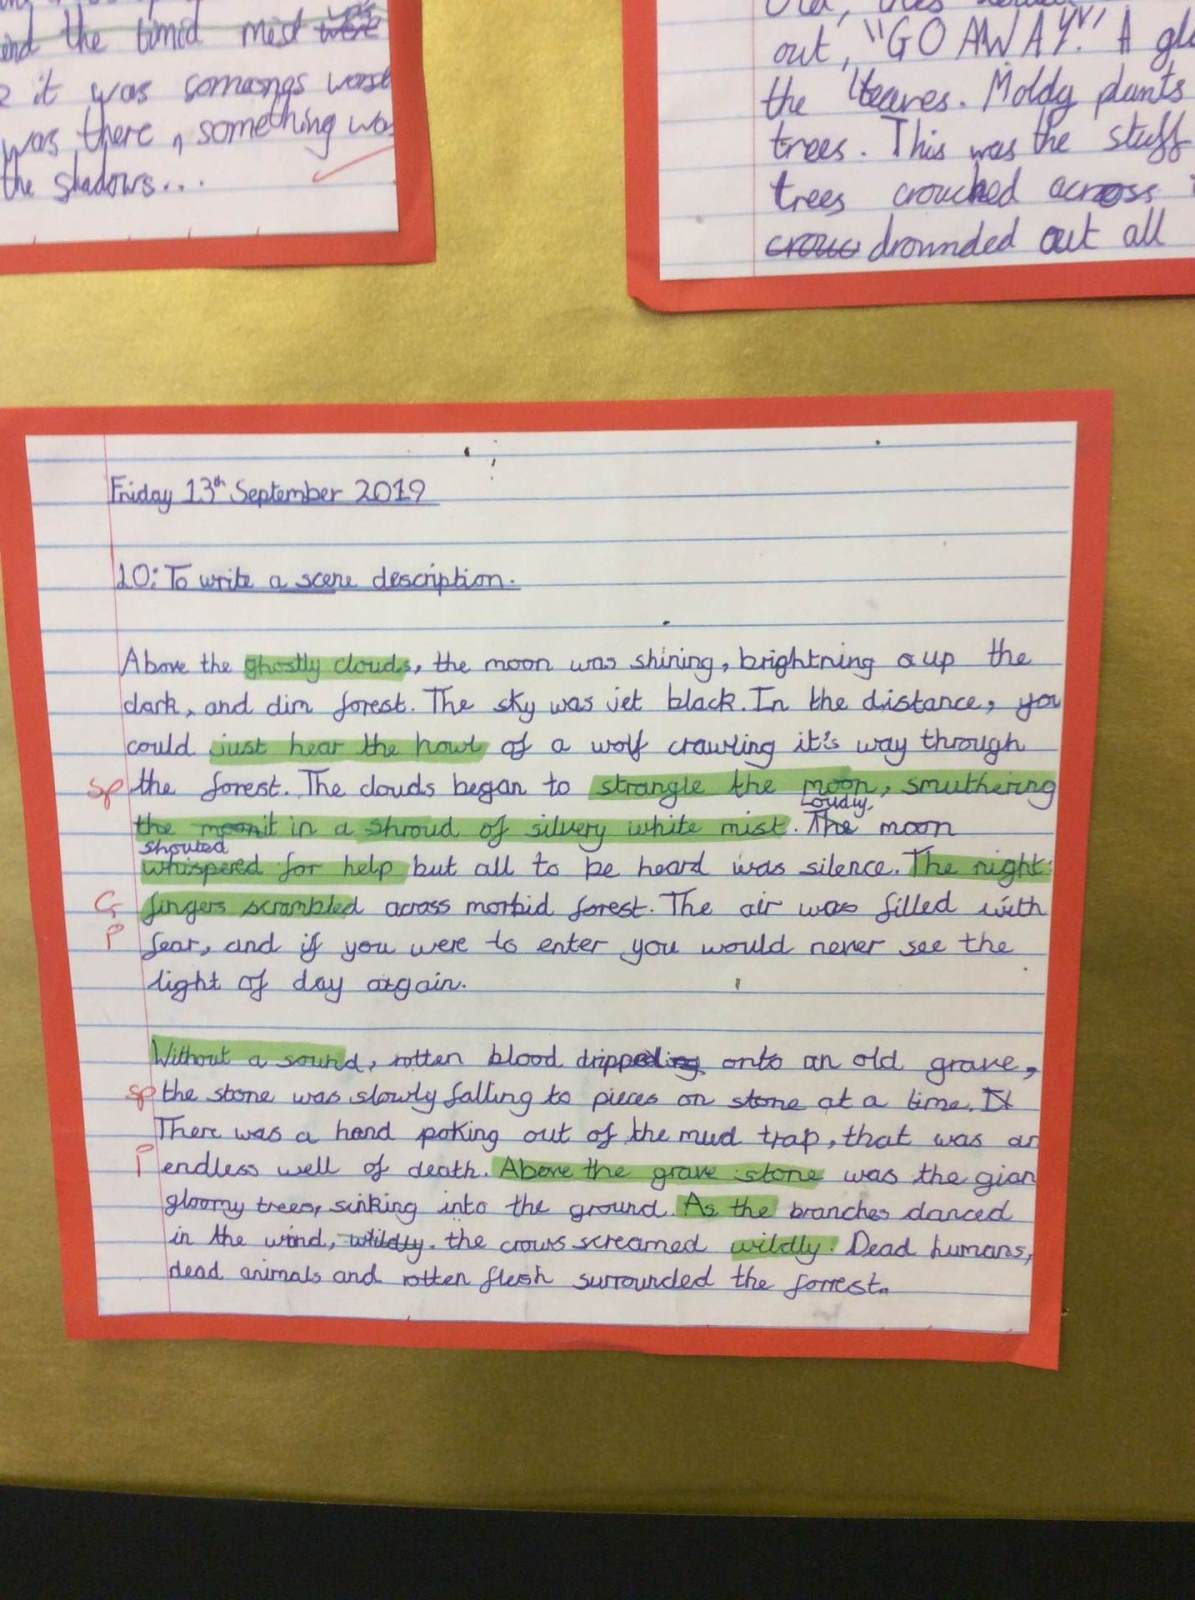 and the timid mist
it was somongs worse
was there, something was
the shadows...
out, "GO AWAY!" A
the leaves. Moldy plants
trees. This was the stuff
trees crouched across
crouc drownded out all
Friday 13th September 2019
LO: To write a scene description.
Above the ghostly clouds, the moon was shining, brightning up the
dark, and dim forest. The sky was jet black. In the distance, you
could just hear the howl of a wolf crawling it's way through
sp the forest. The clouds began to strangle the moon, smuthering
the moon it in a shroud of silvery white mist. The moon
Loudly,
shouted
whispered for help but all to be heard was silence. The night
G fingers scrambled across morbid forest. The air was filled with
P fear, and if you were to enter you would never see the
light of day again.
Without a sound, rotten blood dripped onto an old grave,
sp the stone was slowly falling to pieces on stone at a time. It
There was a hand poking out of the mud trap, that was an
P endless well of death. Above the grave stone was the gian
gloomy trees, sinking into the ground. As the branches danced
in the wind, wildly. the crows screamed wildly. Dead humans,
dead animals and rotten flesh surrounded the forrest.